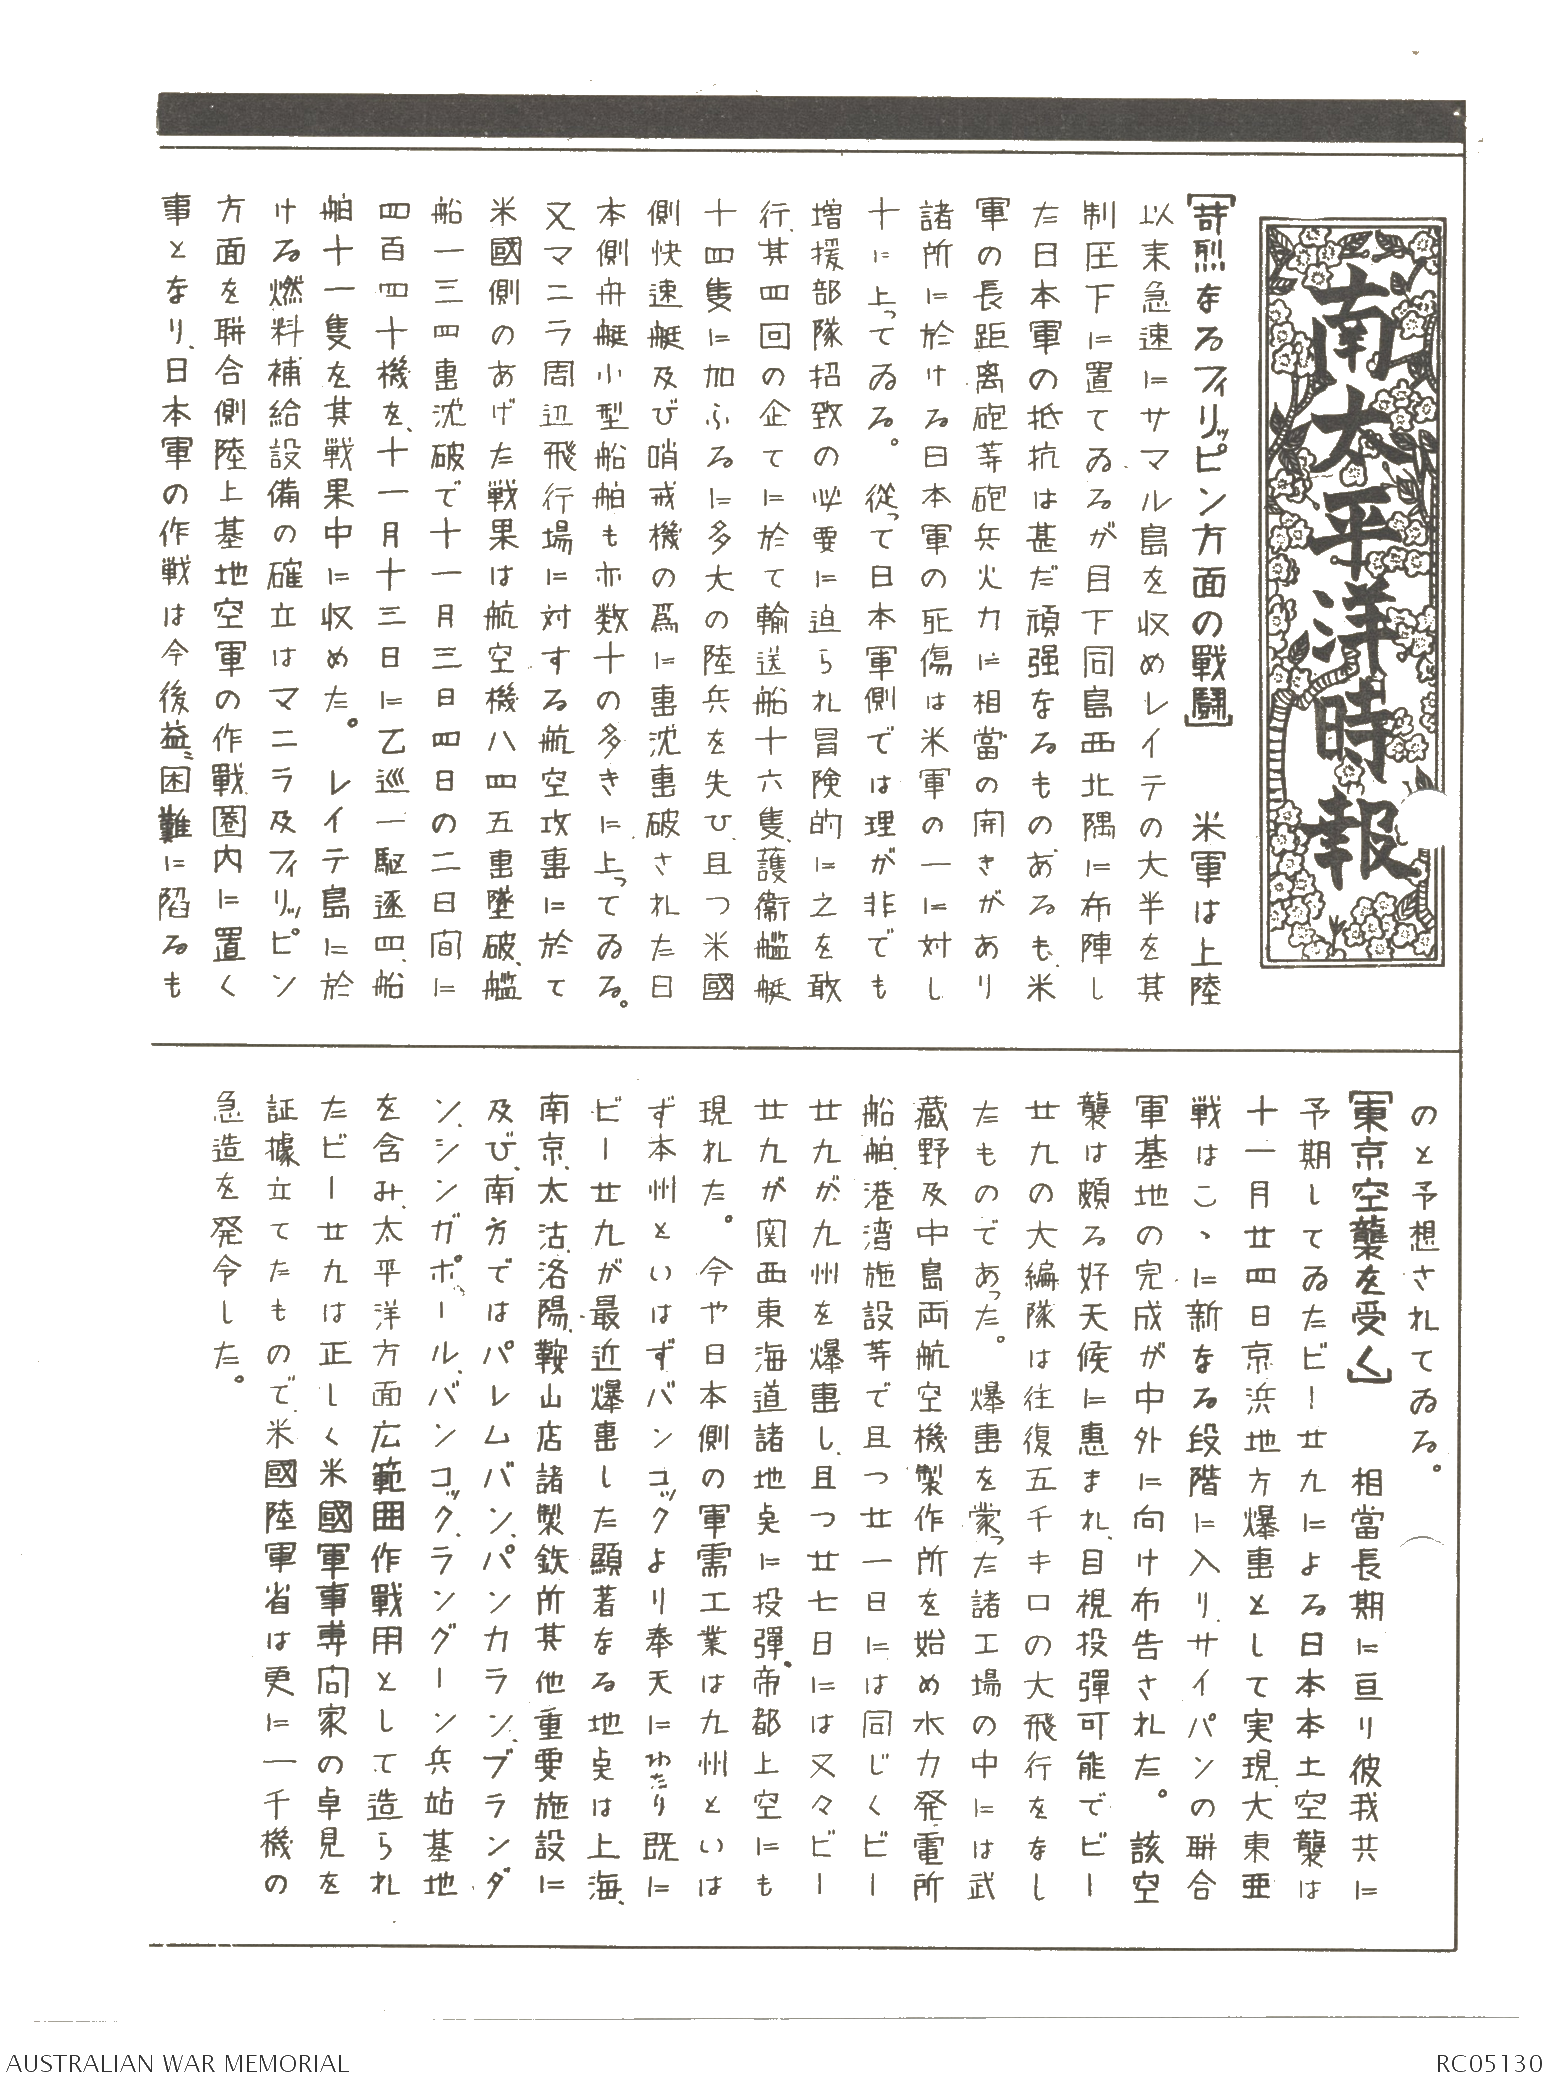 南太平洋時報
【苛烈なるフィリッピン方面の戰鬪】　米軍は上陸
以来急速にサマル島を収めレイテの大半を其
制圧下に置てゐるが目下同島西北隅に布陣し
た日本軍の抵抗は甚だ頑强なるものあるも、米
軍の長距离砲等砲兵火力に相當の開きがあり
諸所に於ける日本軍の死傷は米軍の一に対し
十に上ってゐる。従って日本軍側では理が非でも
増援部隊招致の必要に迫られ冒険的に之を敢
行、其四回の企てに於て輸送船十六隻、護衛艦艇
十四隻に加ふるに多大の陸兵を失ひ、且つ米國
側快速艇及び哨戒機の爲に撃沈撃破された日
本側舟艇小型船舶も亦数十の多きに上ってゐる。
又マニラ周辺飛行場に対する航空攻撃に於て
米國側のあげた戦果は航空機八四五撃墜破、艦
船一三四撃沈破で十一月三日四日の二日间に
四百四十機を、十一月十三日に乙巡一駆逐四、船
舶十一隻を其戦果中に収めた。レイテ島に於
ける燃料補給設備の確立はマニラ及フィリッピン
方面を聨合側陸上基地空軍の作戰圏内に置く
事となり、日本軍の作戦は今後益〻困難に陷るも
のと予想されてゐる。
【東京空襲を受く】　相當長期に亘り彼我共に
予期してゐたビー廿九による日本本土空襲は
十一月廿四日京浜地方爆撃として実現、大東亜
戦はこゝに新なる段階に入り、サイパンの聨合
軍基地の完成が中外に向け布告された。該空
襲は頗る好天候に惠まれ、目視投彈可能でビー
廿九の大編隊は往復五千キロの大飛行をなし
たものであった。爆撃を蒙った諸工場の中には武
蔵野及中島両航空機製作所を始め水力発電所
船舶、港湾施設等で且つ廿一日には同じくビー
廿九が九州を爆撃し、且つ廿七日には又々ビー
廿九が関西東海道諸地奌に投彈、帝都上空にも
現れた。今や日本側の軍需工業は九州といは
ず本州といはずバンコックより奉天にわたり既に
ビー廿九が最近爆撃した顯著なる地奌は上海、
南京、太沽、洛陽、鞍山店諸製鉄所其他重要施設に
及び、南方ではパレムバン、パンカラン、ブランダ
ン、シンガポール、バンコック、ラングーン兵站基地
を含み、太平洋方面広範囲作戰用として造られ
たビー廿九は正しく米國軍事専向家の卓見を
証據立てたもので、米國陸軍省は更に一千機の
急造を発令した。
AUSTRALIAN WAR MEMORIAL
RC05130